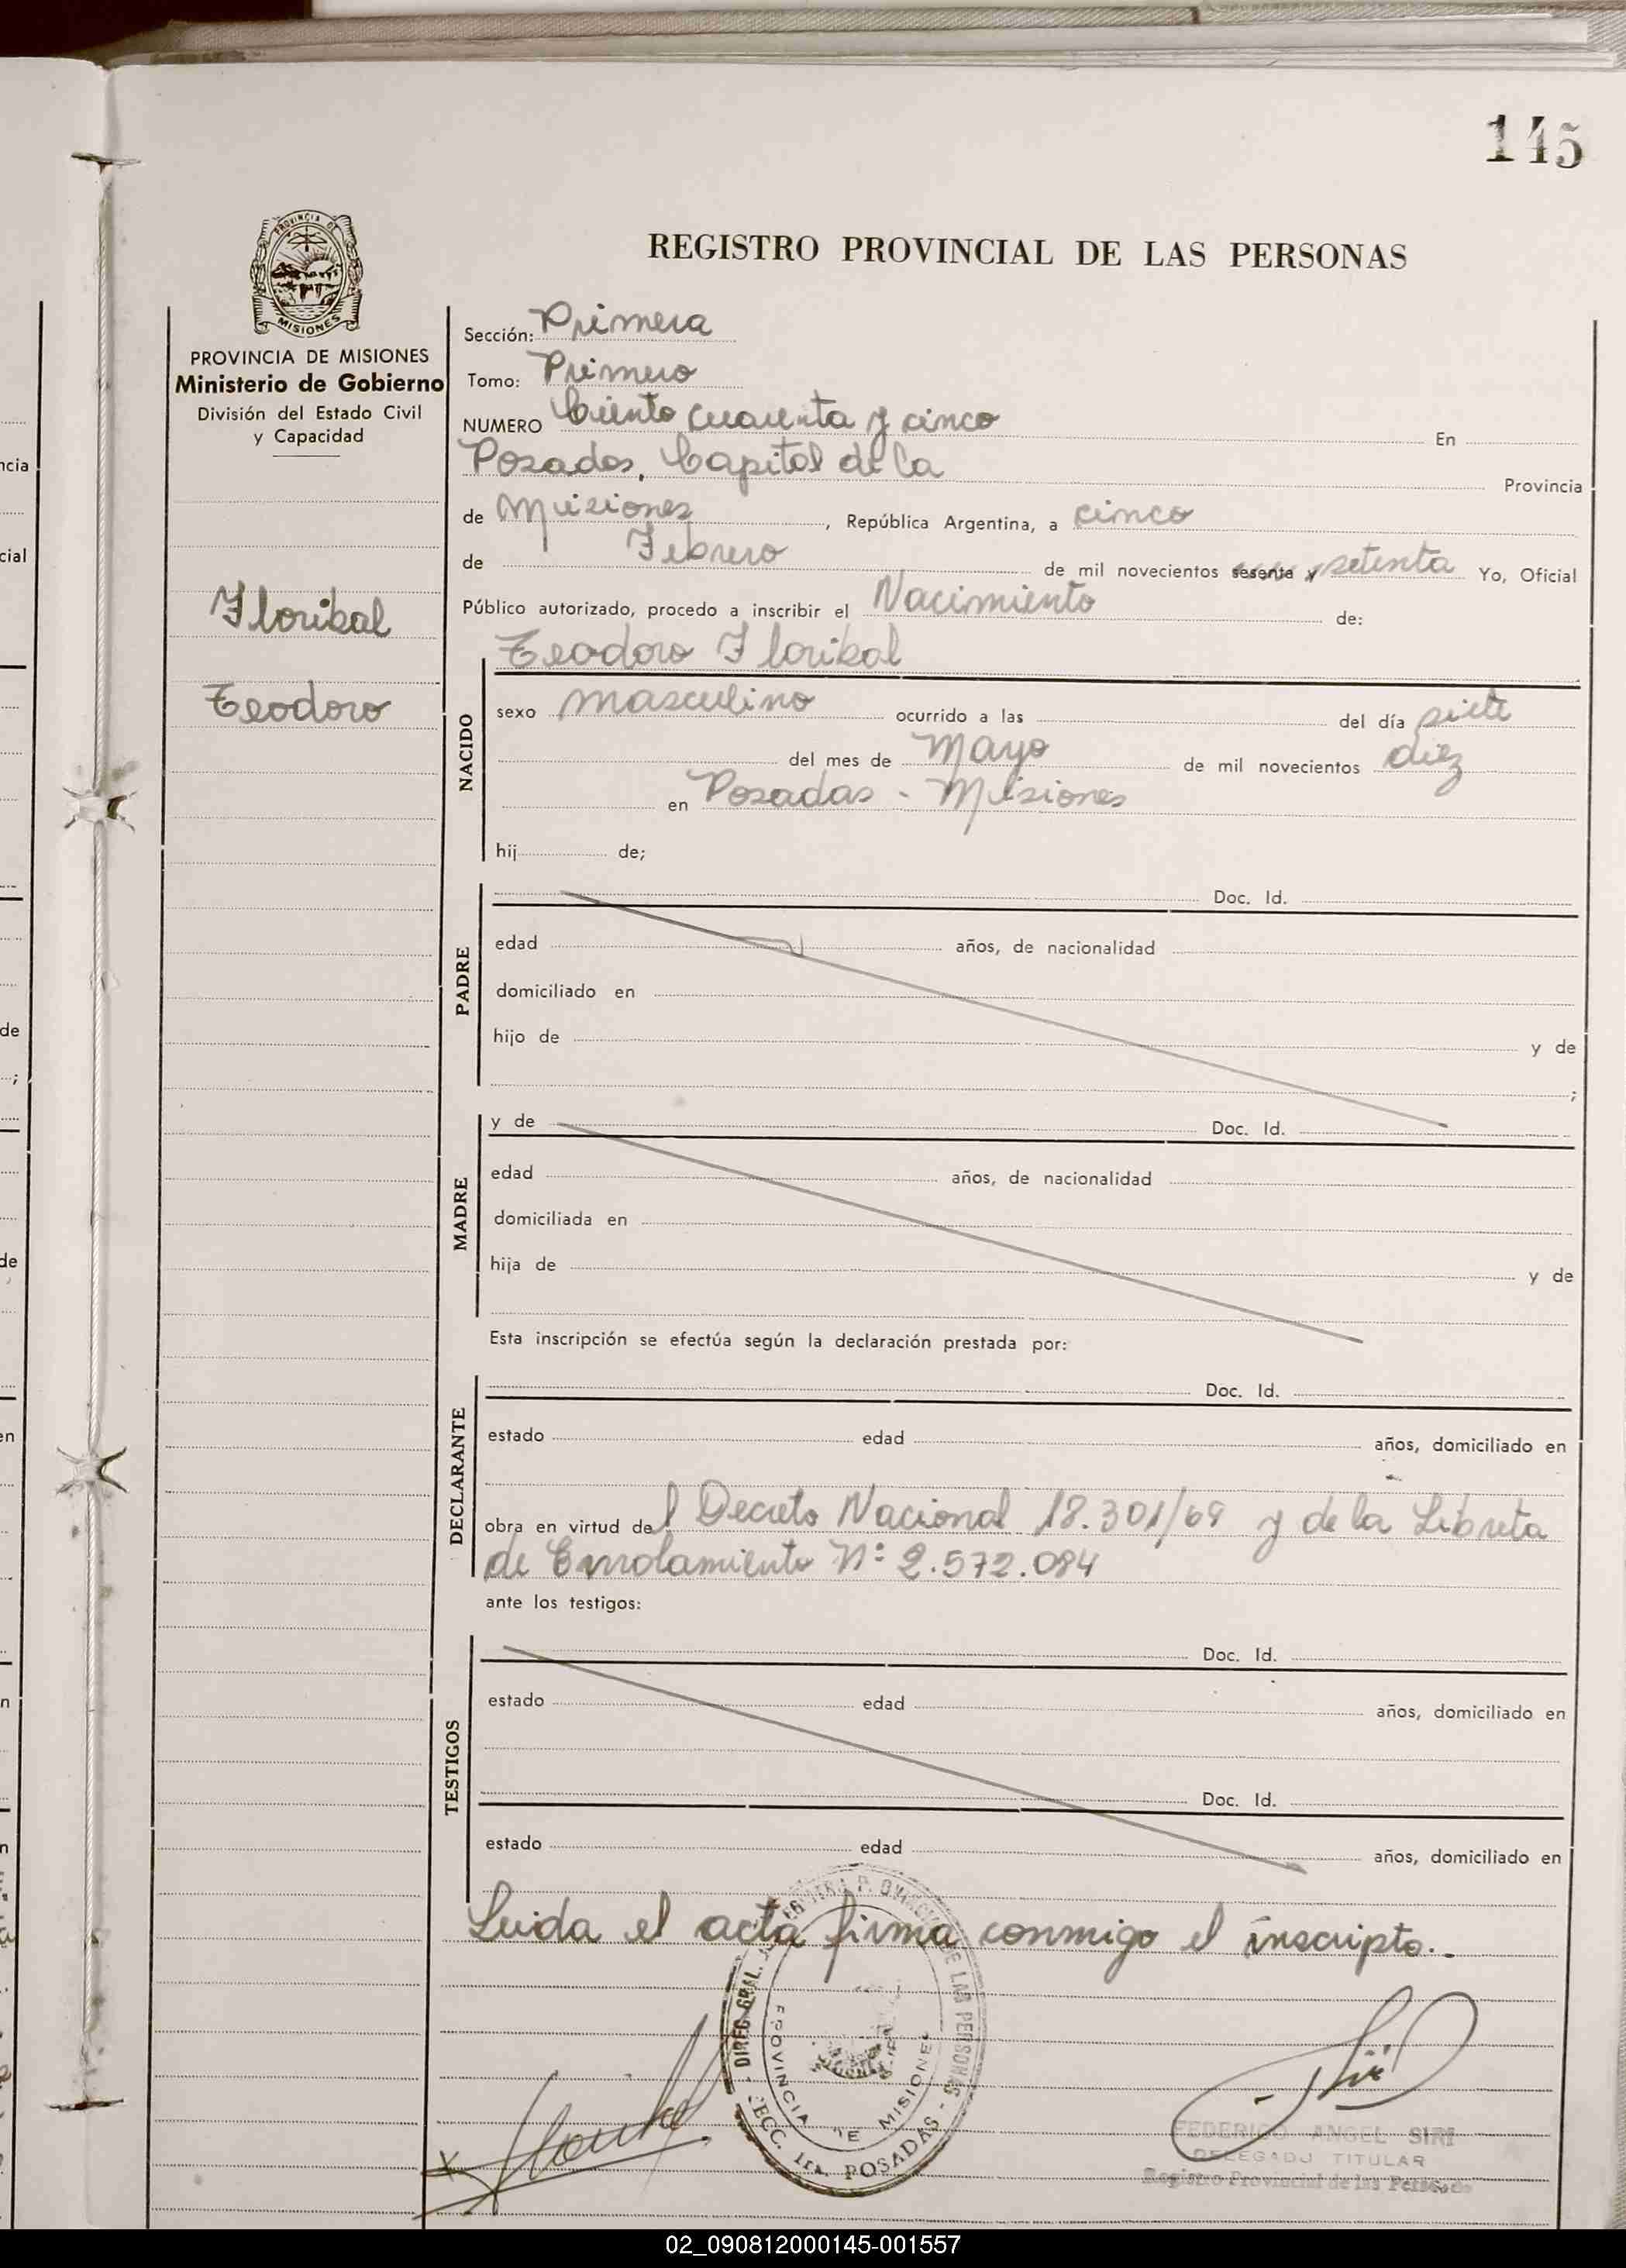 145
PROVINCIA DE
MISIONES
PROVINCIA DE MISIONES
Ministerio de Gobierno
División del Estado Civil
y Capacidad
Floribal
Teodoro
REGISTRO PROVINCIAL DE LAS PERSONAS
Sección: Primera
Tomo: Primero
NUMERO Ciento cuarenta y cinco En
Posadas, Capital de la Provincia
de Misiones, República Argentina, a cinco
de Febrero de mil novecientos sesenta y setenta Yo, Oficial
Público autorizado, procedo a inscribir el Nacimiento de:
Teodoro Floribal
NACIDO
sexo masculino ocurrido a las del día siete
del mes de Mayo de mil novecientos diez
en Posadas - Misiones
hij de;
PADRE
Doc. Id.
edad años, de nacionalidad
domiciliado en
hijo de y de
;
MADRE
y de Doc. Id.
edad años, de nacionalidad
domiciliada en
hija de y de
Esta inscripción se efectúa según la declaración prestada por:
DECLARANTE
Doc. Id.
estado edad años, domiciliado en
obra en virtud del Decreto Nacional 18.301/69 y de la Libreta
de Enrolamiento Nº 2.572.084
ante los testigos:
TESTIGOS
Doc. Id.
estado edad años, domiciliado en
Doc. Id.
estado edad años, domiciliado en
Leida el acta firma conmigo el inscripto.
DIREC. GRAL. DE LAS PERSONAS
SECC. 1ra. POSADAS
PROVINCIA DE MISIONES
FEDERICO ANGEL SIRI
DELEGADO TITULAR
Registro Provincial de las Personas
02_090812000145-001557